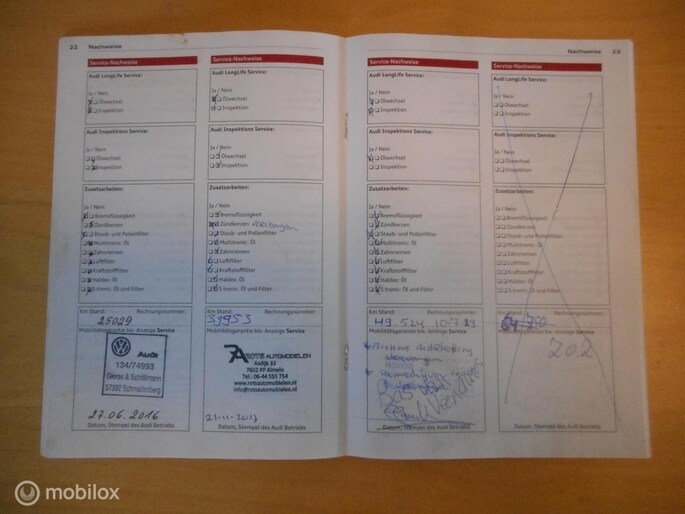 22 Nachweise
Service-Nachweise
Audi LongLife Service:
Ja / Nein
Ölwechsel
Inspektion
Audi Inspektions Service:
Ja / Nein
Ölwechsel
Inspektion
Zusatzarbeiten:
Ja / Nein
Bremsflüssigkeit
Zündkerzen
Staub- und Pollenfilter
Multitronic: Öl
Zahnriemen
Luftfilter
Kraftstofffilter
Haldex: Öl
S tronic: Öl und Filter
Km Stand: Rechnungsnummer:
25029
Mobilitätsgarantie bis: Anzeige Service
Audi
134/74993
57392 Schmallenberg
27.06.2016
Datum, Stempel des Audi Betriebs
Service-Nachweise
Audi LongLife Service:
Ja / Nein
Ölwechsel
Inspektion
Audi Inspektions Service:
Ja / Nein
Ölwechsel
Inspektion
Zusatzarbeiten:
Ja / Nein
Bremsflüssigkeit
Zündkerzen
Staub- und Pollenfilter
Multitronic: Öl
Zahnriemen
Luftfilter
Kraftstofffilter
Haldex: Öl
S tronic: Öl und Filter
Km Stand: Rechnungsnummer:
35953
Mobilitätsgarantie bis: Anzeige Service
ROTS AUTOMOBIELEN
Aadijk 33
7602 PP Almelo
Tel.: 06-44 555 754
www.rotsautomobielen.nl
21-11-2017
Datum, Stempel des Audi Betriebs
Nachweise 23
Service-Nachweise
Audi LongLife Service:
Ja / Nein
Ölwechsel
Inspektion
Audi Inspektions Service:
Ja / Nein
Ölwechsel
Inspektion
Zusatzarbeiten:
Ja / Nein
Bremsflüssigkeit
Zündkerzen
Staub- und Pollenfilter
Multitronic: Öl
Zahnriemen
Luftfilter
Kraftstofffilter
Haldex: Öl
S tronic: Öl und Filter
Km Stand: Rechnungsnummer:
49.524
Mobilitätsgarantie bis: Anzeige Service
Datum, Stempel des Audi Betriebs
Service-Nachweise
Audi LongLife Service:
Ja / Nein
Ölwechsel
Inspektion
Audi Inspektions Service:
Ja / Nein
Ölwechsel
Inspektion
Zusatzarbeiten:
Ja / Nein
Bremsflüssigkeit
Zündkerzen
Staub- und Pollenfilter
Multitronic: Öl
Zahnriemen
Luftfilter
Kraftstofffilter
Haldex: Öl
S tronic: Öl und Filter
Km Stand: Rechnungsnummer:
Mobilitätsgarantie bis: Anzeige Service
202
Datum, Stempel des Audi Betriebs
mobilox